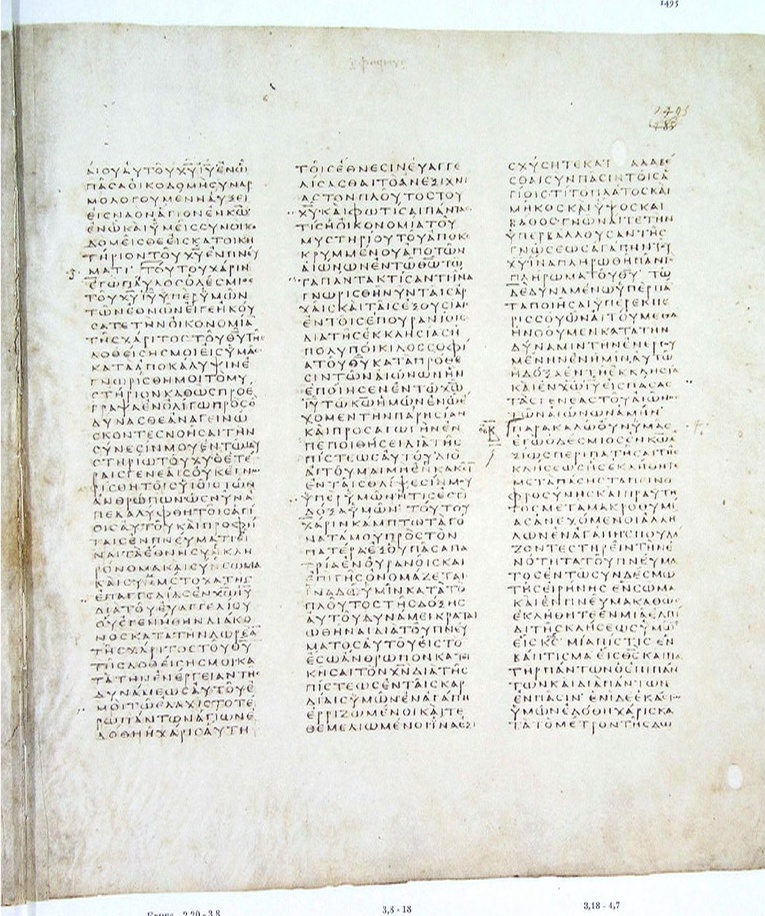 ΛΙΟΥΑΥΤΟΥΧΥΙΥΕΝΩ
ΠΑϹΑΟΙΚΟΔΟΜΗϹΥΝΑΡ
ΜΟΛΟΓΟΥΜΕΝΗΑΥΞΕΙ
ΕΙϹΝΑΟΝΑΓΙΟΝΕΝΚΩ
ΕΝΩΚΑΙΥΜΕΙϹϹΥΝΟΙΚΟ
ΔΟΜΕΙϹΘΕΕΙϹΚΑΤΟΙΚΗ
ΤΗΡΙΟΝΤΟΥΧΥΕΝΠΝΕΥ
ΜΑΤΙ ΤΟΥΤΟΥΧΑΡΙΝ
ΕΓΩΠΑΥΛΟϹΟΔΕϹΜΙΟϹ
ΤΟΥΧΥΙΥΥΠΕΡΥΜΩΝ
ΤΩΝΕΘΝΩΝΕΙΓΕΗΚΟΥ
ϹΑΤΕΤΗΝΟΙΚΟΝΟΜΙΑ
ΤΗϹΧΑΡΙΤΟϹΤΟΥΘΥΤΗϹ
ΔΟΘΕΙϹΗϹΜΟΙΕΙϹΥΜΑϹ
ΚΑΤΑΑΠΟΚΑΛΥΨΙΝΕ
ΓΝΩΡΙϹΘΗΜΟΙΤΟΜΥ
ϹΤΗΡΙΟΝΚΑΘΩϹΠΡΟΕ
ΓΡΑΨΑΕΝΟΛΙΓΩΠΡΟϹΟ
ΔΥΝΑϹΘΕΑΝΑΓΕΙΝΩ
ϹΚΟΝΤΕϹΝΟΗϹΑΙΤΗΝ
ϹΥΝΕϹΙΝΜΟΥΕΝΤΩΜΥ
ϹΤΗΡΙΩΤΟΥΧΥΟΕΤΕ
ΡΑΙϹΓΕΝΕΑΙϹΟΥΚΕΓΝΩ
ΡΙϹΘΗΤΟΙϹΥΙΟΙϹΤΩΝ
ΑΝΘΡΩΠΩΝΩϹΝΥΝΑ
ΠΕΚΑΛΥΦΘΗΤΟΙϹΑΓΙ
ΟΙϹΑΥΤΟΥΚΑΙΠΡΟΦΗ
ΤΑΙϹΕΝΠΝΕΥΜΑΤΙΕΙ
ΝΑΙΤΑΕΘΝΗϹΥΝΚΛΗ
ΡΟΝΟΜΑΚΑΙϹΥΝϹΩΜΑ
ΚΑΙϹΥΝΜΕΤΟΧΑΤΗϹ
ΕΠΑΓΓΕΛΙΑϹΕΝΧΩΙΥ
ΔΙΑΤΟΥΕΥΑΓΓΕΛΙΟΥ
ΟΥΕΓΕΝΗΘΗΝΔΙΑΚΟ
ΝΟϹΚΑΤΑΤΗΝΔΩΡΕΑ
ΤΗϹΧΑΡΙΤΟϹΤΟΥΘΥ
ΤΗϹΔΟΘΕΙϹΗϹΜΟΙΚΑ
ΤΑΤΗΝΕΝΕΡΓΕΙΑΝΤΗϹ
ΔΥΝΑΜΕΩϹΑΥΤΟΥΕ
ΜΟΙΤΩΕΛΑΧΙϹΤΟΤΕ
ΡΩΠΑΝΤΩΝΑΓΙΩΝΕ
ΔΟΘΗΗΧΑΡΙϹΑΥΤΗ
ΤΟΙϹΕΘΝΕϹΙΝΕΥΑΓΓΕ
ΛΙϹΑϹΘΑΙΤΟΑΝΕΞΙΧΝΙ
ΑϹΤΟΝΠΛΟΥΤΟϹΤΟΥ
ΧΥΚΑΙΦΩΤΙϹΑΙΠΑΝΤΑϹ
ΤΙϹΗΟΙΚΟΝΟΜΙΑΤΟΥ
ΜΥϹΤΗΡΙΟΥΤΟΥΑΠΟΚΕ
ΚΡΥΜΜΕΝΟΥΑΠΟΤΩΝ
ΑΙΩΝΩΝΕΝΤΩΘΩΤΩ
ΤΑΠΑΝΤΑΚΤΙϹΑΝΤΙΙΝΑ
ΓΝΩΡΙϹΘΗΝΥΝΤΑΙϹΑΡ
ΧΑΙϹΚΑΙΤΑΙϹΕΞΟΥϹΙΑΙϹ
ΕΝΤΟΙϹΕΠΟΥΡΑΝΙΟΙϹ
ΔΙΑΤΗϹΕΚΚΛΗϹΙΑϹΗ
ΠΟΛΥΠΟΙΚΙΛΟϹϹΟΦΙ
ΑΤΟΥΘΥΚΑΤΑΠΡΟΘΕ
ϹΙΝΤΩΝΑΙΩΝΩΝΗΝ
ΕΠΟΙΗϹΕΝΕΝΤΩΧΩ
ΙΥΤΩΚΩΗΜΩΝΕΝΩΕ
ΧΟΜΕΝΤΗΝΠΑΡΗϹΙΑΝ
ΚΑΙΠΡΟϹΑΓΩΓΗΝΕΝ
ΠΕΠΟΙΘΗϹΕΙΔΙΑΤΗϹ
ΠΙϹΤΕΩϹΑΥΤΟΥΔΙΟ
ΑΙΤΟΥΜΑΙΜΗΕΝΚΑΚΙ
ΕΝΤΑΙϹΘΛΙΨΕϹΙΝΜΟΥ
ΥΠΕΡΥΜΩΝΗΤΙϹΕϹΤΙ
ΔΟΞΑΥΜΩΝ ΤΟΥΤΟΥ
ΧΑΡΙΝΚΑΜΠΤΩΤΑΓΟ
ΝΑΤΑΜΟΥΠΡΟϹΤΟΝ
ΠΑΤΕΡΑΕΞΟΥΠΑϹΑΠΑ
ΤΡΙΑΕΝΟΥΡΑΝΟΙϹΚΑΙ
ΕΠΙΓΗϹΟΝΟΜΑΖΕΤΑΙ
ΙΝΑΔΩΥΜΙΝΚΑΤΑΤΟ
ΠΛΟΥΤΟϹΤΗϹΔΟΞΗϹ
ΑΥΤΟΥΔΥΝΑΜΕΙΚΡΑΤΑΙ
ΩΘΗΝΑΙΔΙΑΤΟΥΠΝΕΥ
ΜΑΤΟϹΑΥΤΟΥΕΙϹΤΟ
ΕϹΩΑΝΘΡΩΠΟΝΚΑΤΟΙ
ΚΗϹΑΙΤΟΝΧΝΔΙΑΤΗϹ
ΠΙϹΤΕΩϹΕΝΤΑΙϹΚΑΡ
ΔΙΑΙϹΥΜΩΝΕΝΑΓΑΠΗ
ΕΡΡΙΖΩΜΕΝΟΙΚΑΙΤΕ
ΘΕΜΕΛΙΩΜΕΝΟΙΙΝΑΕΞΙ
ϹΧΥϹΗΤΕΚΑΤΑΛΑΒΕ
ϹΘΑΙϹΥΝΠΑϹΙΝΤΟΙϹΑ
ΓΙΟΙϹΤΙΤΟΠΛΑΤΟϹΚΑΙ
ΜΗΚΟϹΚΑΙΥΨΟϹΚΑΙ
ΒΑΘΟϹΓΝΩΝΑΙΤΕΤΗΝ
ΥΠΕΡΒΑΛΛΟΥϹΑΝΤΗϹ
ΓΝΩϹΕΩϹΑΓΑΠΗΝΤΟΥ
ΧΥΙΝΑΠΛΗΡΩΘΗΠΑΝΤΟ
ΠΛΗΡΩΜΑΤΟΥΘΥ ΤΩ
ΔΕΔΥΝΑΜΕΝΩΥΠΕΡΠΑ
ΤΑΠΟΙΗϹΑΙΥΠΕΡΕΚΠΕ
ΡΙϹϹΟΥΩΝΑΙΤΟΥΜΕΘΑ
ΗΝΟΟΥΜΕΝΚΑΤΑΤΗΝ
ΔΥΝΑΜΙΝΤΗΝΕΝΕΡΓΟΥ
ΜΕΝΗΝΕΝΗΜΙΝΑΥΤΩ
ΗΔΟΞΑΕΝΤΗΕΚΚΛΗϹΙΑ
ΚΑΙΕΝΧΩΙΥΕΙϹΠΑϹΑϹ
ΤΑϹΓΕΝΕΑϹΤΟΥΑΙΩΝΟϹ
ΤΩΝΑΙΩΝΩΝΑΜΗΝ
ΠΑΡΑΚΑΛΩΟΥΝΥΜΑϹ
ΕΓΩΟΔΕϹΜΙΟϹΕΝΚΩΑ
ΞΙΩϹΠΕΡΙΠΑΤΗϹΑΙΤΗϹ
ΚΛΗϹΕΩϹΗϹΕΚΛΗΘΗΤΕ
ΜΕΤΑΠΑϹΗϹΤΑΠΕΙΝΟ
ΦΡΟϹΥΝΗϹΚΑΙΠΡΑΥΤΗ
ΤΟϹΜΕΤΑΜΑΚΡΟΘΥΜΙ
ΑϹΑΝΕΧΟΜΕΝΟΙΑΛΛΗ
ΛΩΝΕΝΑΓΑΠΗϹΠΟΥΔΑ
ΖΟΝΤΕϹΤΗΡΕΙΝΤΗΝΕ
ΝΟΤΗΤΑΤΟΥΠΝΕΥΜΑ
ΤΟϹΕΝΤΩϹΥΝΔΕϹΜΩ
ΤΗϹΕΙΡΗΝΗϹΕΝϹΩΜΑ
ΚΑΙΕΝΠΝΕΥΜΑΚΑΘΩϹ
ΕΚΛΗΘΗΤΕΕΝΜΙΑΕΛΠΙ
ΔΙΤΗϹΚΛΗϹΕΩϹΥΜΩΝ
ΕΙϹΚϹΜΙΑΠΙϹΤΙϹΕΝ
ΒΑΠΤΙϹΜΑΕΙϹΘϹΚΑΙΠΑ
ΤΗΡΠΑΝΤΩΝΟΕΠΙΠΑΝ
ΤΩΝΚΑΙΔΙΑΠΑΝΤΩΝ
ΕΝΠΑϹΙΝ ΕΝΙΔΕΕΚΑϹΤΩ
ΥΜΩΝΕΔΟΘΗΧΑΡΙϹΚΑ
ΤΑΤΟΜΕΤΡΟΝΤΗϹΔΩ
1495
3,8 - 18
3,18 - 4,7